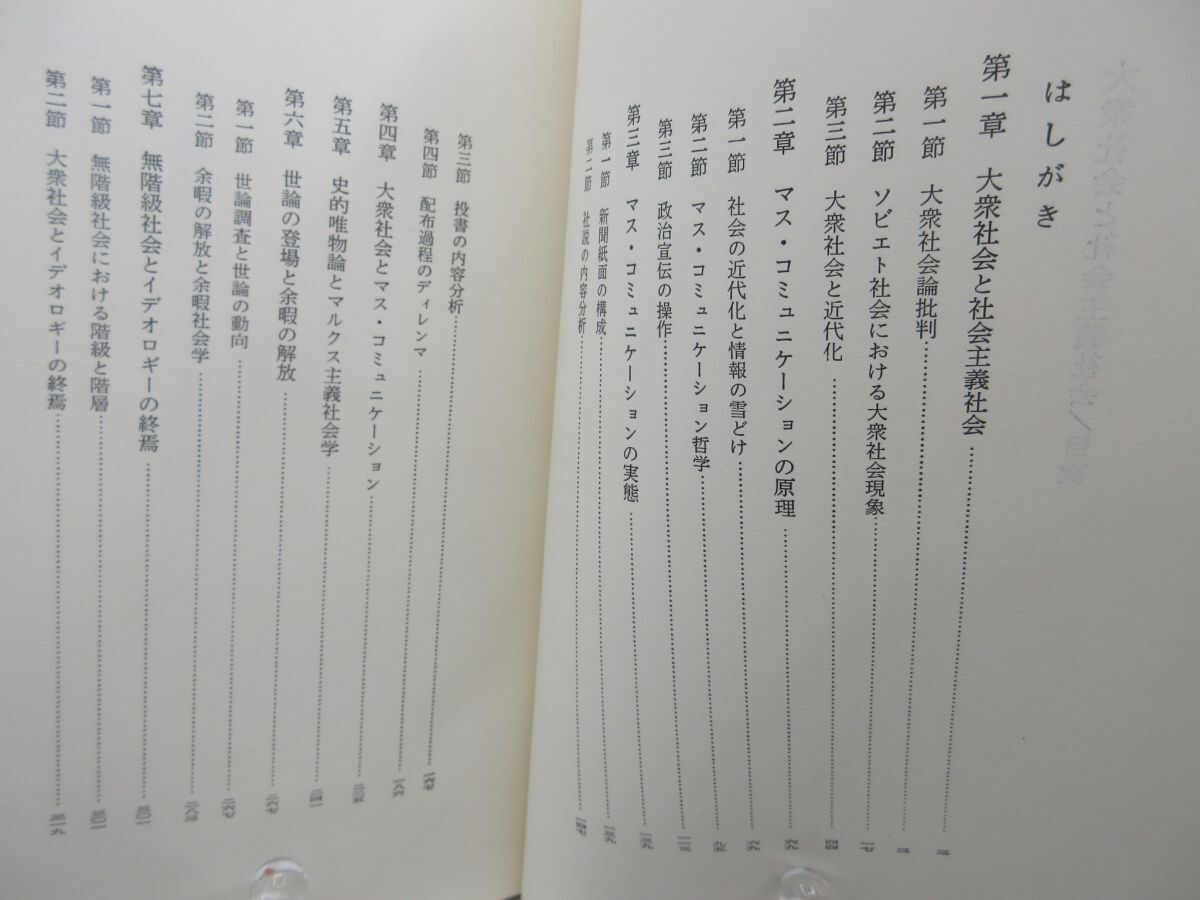 はしがき
第一章 大衆社会と社会主義社会
第一節 大衆社会論批判
第二節 ソビエト社会における大衆社会現象 一七
第三節 大衆社会と近代化 四四
第二章 マス・コミュニケーションの原理 六九
第一節 社会の近代化と情報の雪どけ 六九
第二節 マス・コミュニケーション哲学 九五
第三節 政治宣伝の操作
第三章 マス・コミュニケーションの実態 一三九
第一節 新聞紙面の構成 一三九
第二節 社説の内容分析 一四七
第三節 投書の内容分析
第四節 配布過程のディレンマ
第四章 大衆社会とマス・コミュニケーション
第五章 史的唯物論とマルクス主義社会学 二四一
第六章 世論の登場と余暇の解放 二六七
第一節 世論調査と世論の動向 二六七
第二節 余暇の解放と余暇社会学
第七章 無階級社会とイデオロギーの終焉 三〇一
第一節 無階級社会における階級と階層 三〇一
第二節 大衆社会とイデオロギーの終焉 三一九
大衆社会と社会主義社会／目次